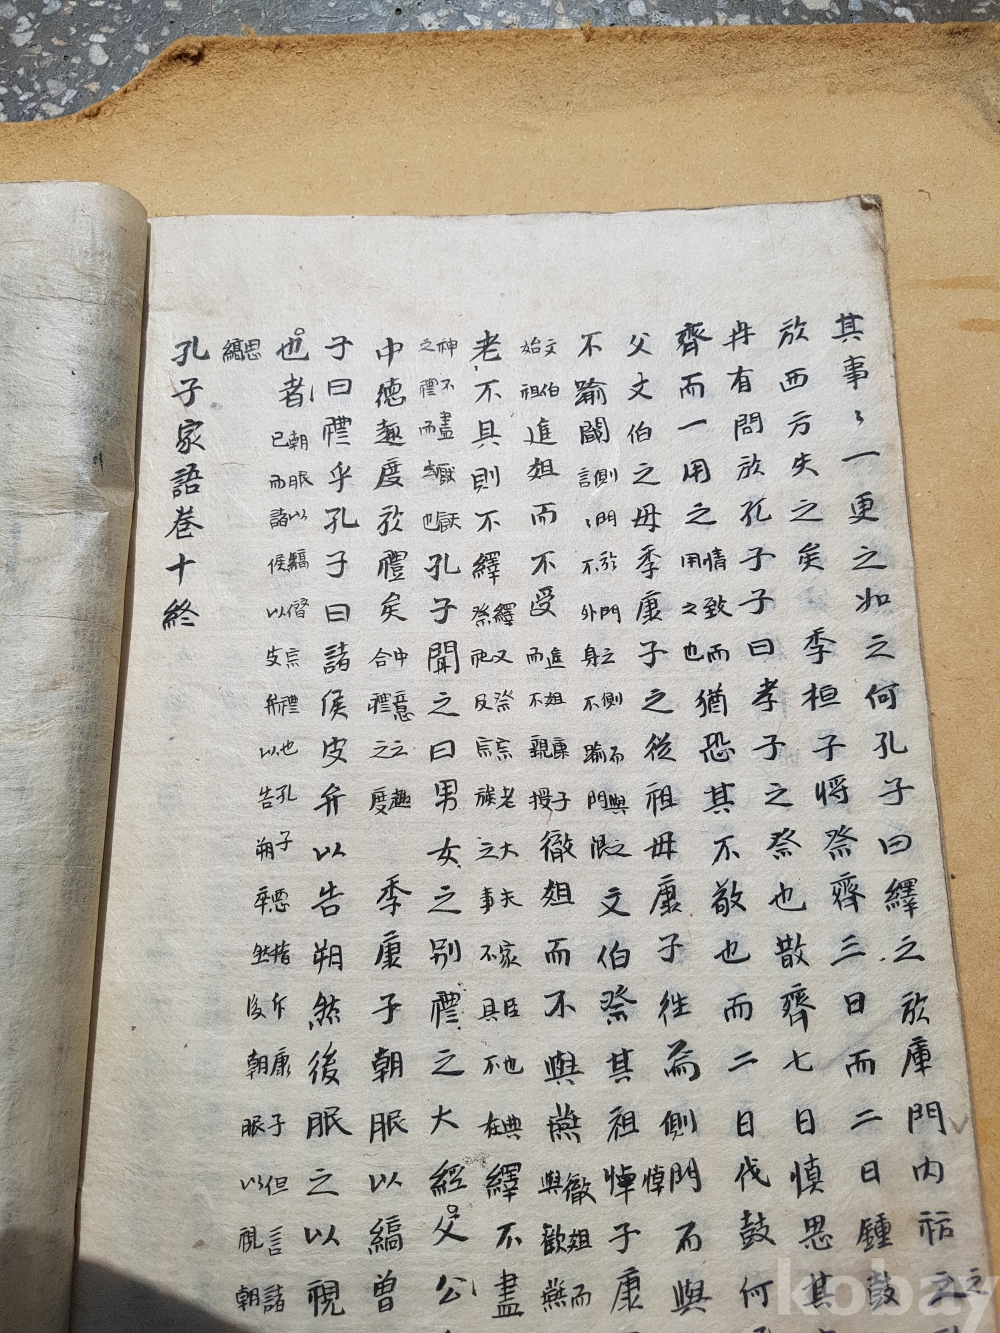 其事〻一更之如之何孔子曰繹之於庫門內祊之
於西方失之矣 季桓子將祭齊三日而二日鍾鼓之
冉有問於孔子子曰孝子之祭也散齊七日慎思其
齊而一用之情致而用之也猶恐其不敬也而二日伐鼓何
父文伯之母季康子之從祖母康子往焉側門而與
不踰閾側門於門之側而與之言〻不外身不踰門限文伯祭其祖悼子康
文伯始祖進俎而不受進俎康子而不親授徹俎而不與燕徹俎而與歡燕
老不具則不繹繹又祭宗老大夫家臣也典祭祀及宗族之事不具不在繹不盡
神不盡厭之禮而也孔子聞之曰男女之別禮之大經父公
中德趣度於禮矣中意之趣合禮之度 季康子朝服以縞曾
子曰禮乎孔子曰諸侯皮弁以告朔然後服之以視
也者朝服以縞僭宗禮也孔子惡指斥康子但言諸已而諸侯以皮弁以告朔卒然後朝服以視朝
思縞
孔子家語卷十終
kobay